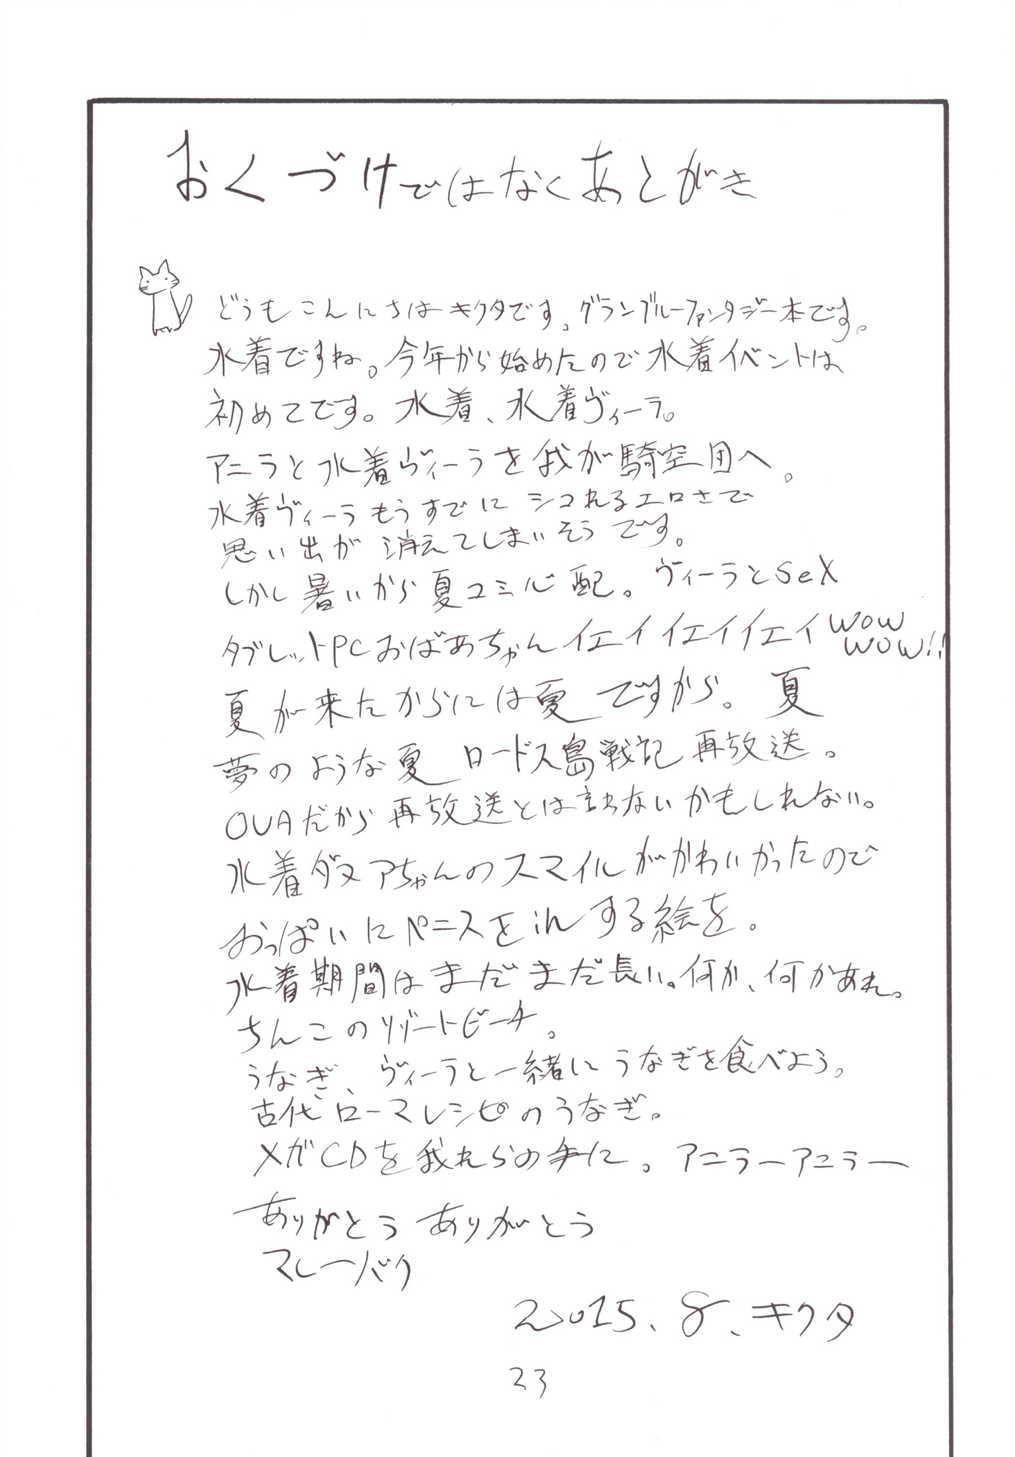 おくづけではなくあとがき
どうもこんにちは キクタです。グランブルーファンタジー本です。
水着ですね。今年から始めたので水着イベントは
初めてです。水着、水着ヴィーラ。
アニラと水着ヴィーラを我が騎空団へ。
水着ヴィーラもうすでに シコれるエロさで
思い出が 消えてしまいそうです。
しかし暑いから夏コミ心配。ヴィーラとSeX
タブレットPCおばあちゃんイエイイエイイエイWOW
WOW!!
夏が来たからには夏ですから。夏
夢のような夏 ロードス島戦記再放送。
OVAだから再放送とは言わないかもしれない。
水着ダヌアちゃんのスマイルがかわいかったので
おっぱいにペニスをinする絵を。
水着期間はまだまだ長い。何か、何かあれ。
ちんこのリゾートビーチ。
うなぎ、ヴィーラと一緒にうなぎを食べよう。
古代ローマレシピのうなぎ。
メガCDを我れらの手に。アニラーアニラー
ありがとう ありがとう
マレーバク
2015、8、キクタ
23